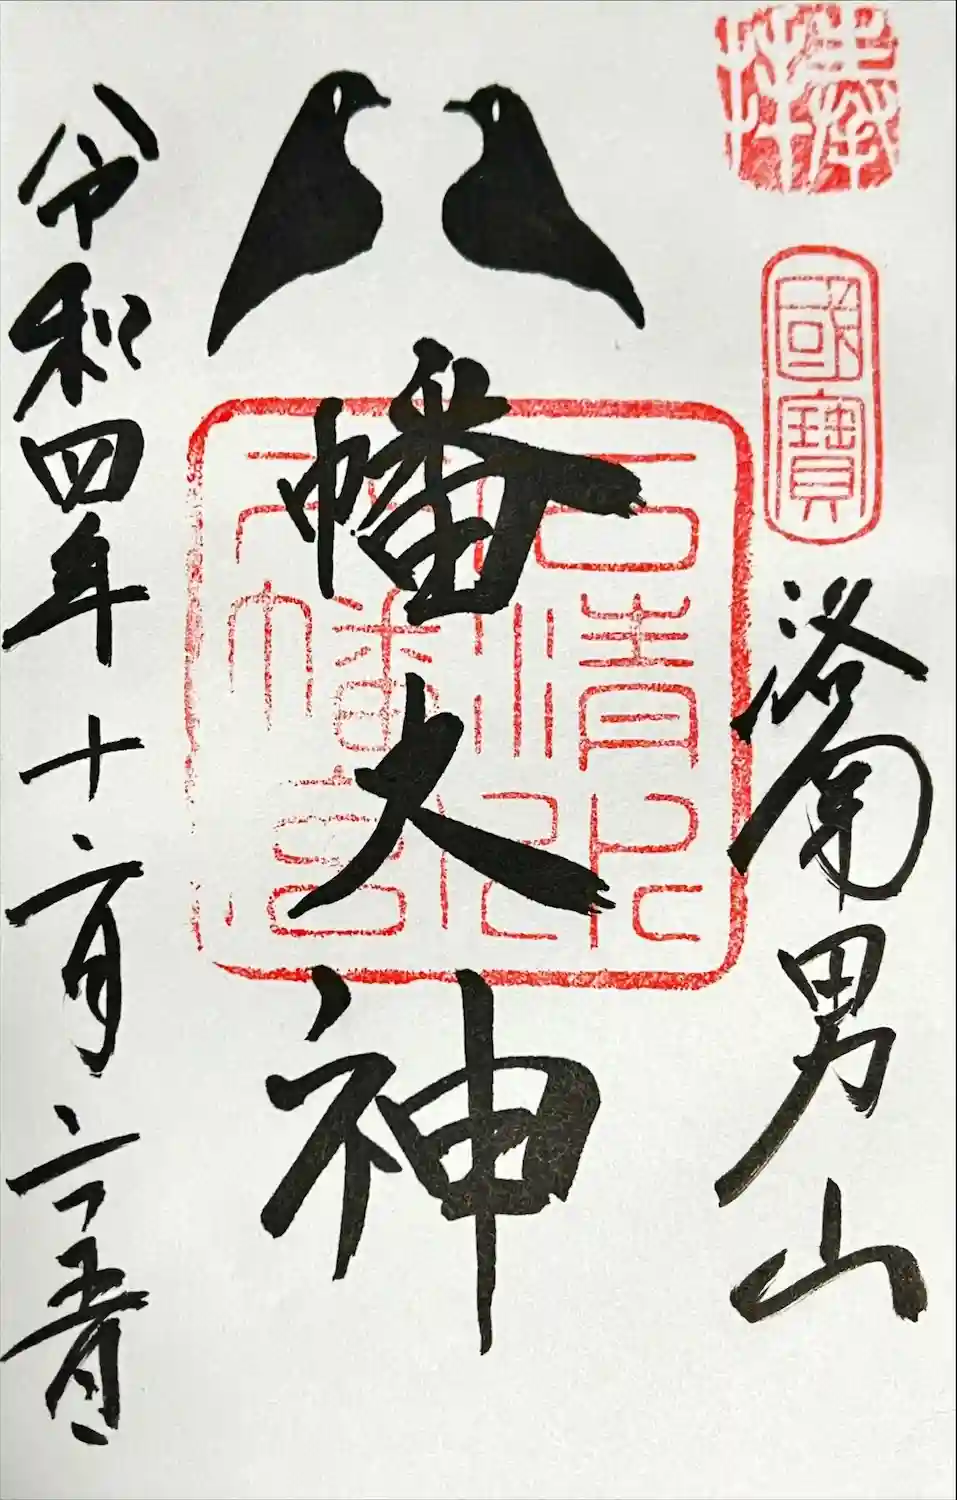 奉拝
國寶
洛南男山
八幡大神
石清水八幡宮
令和四年十二月二十五日